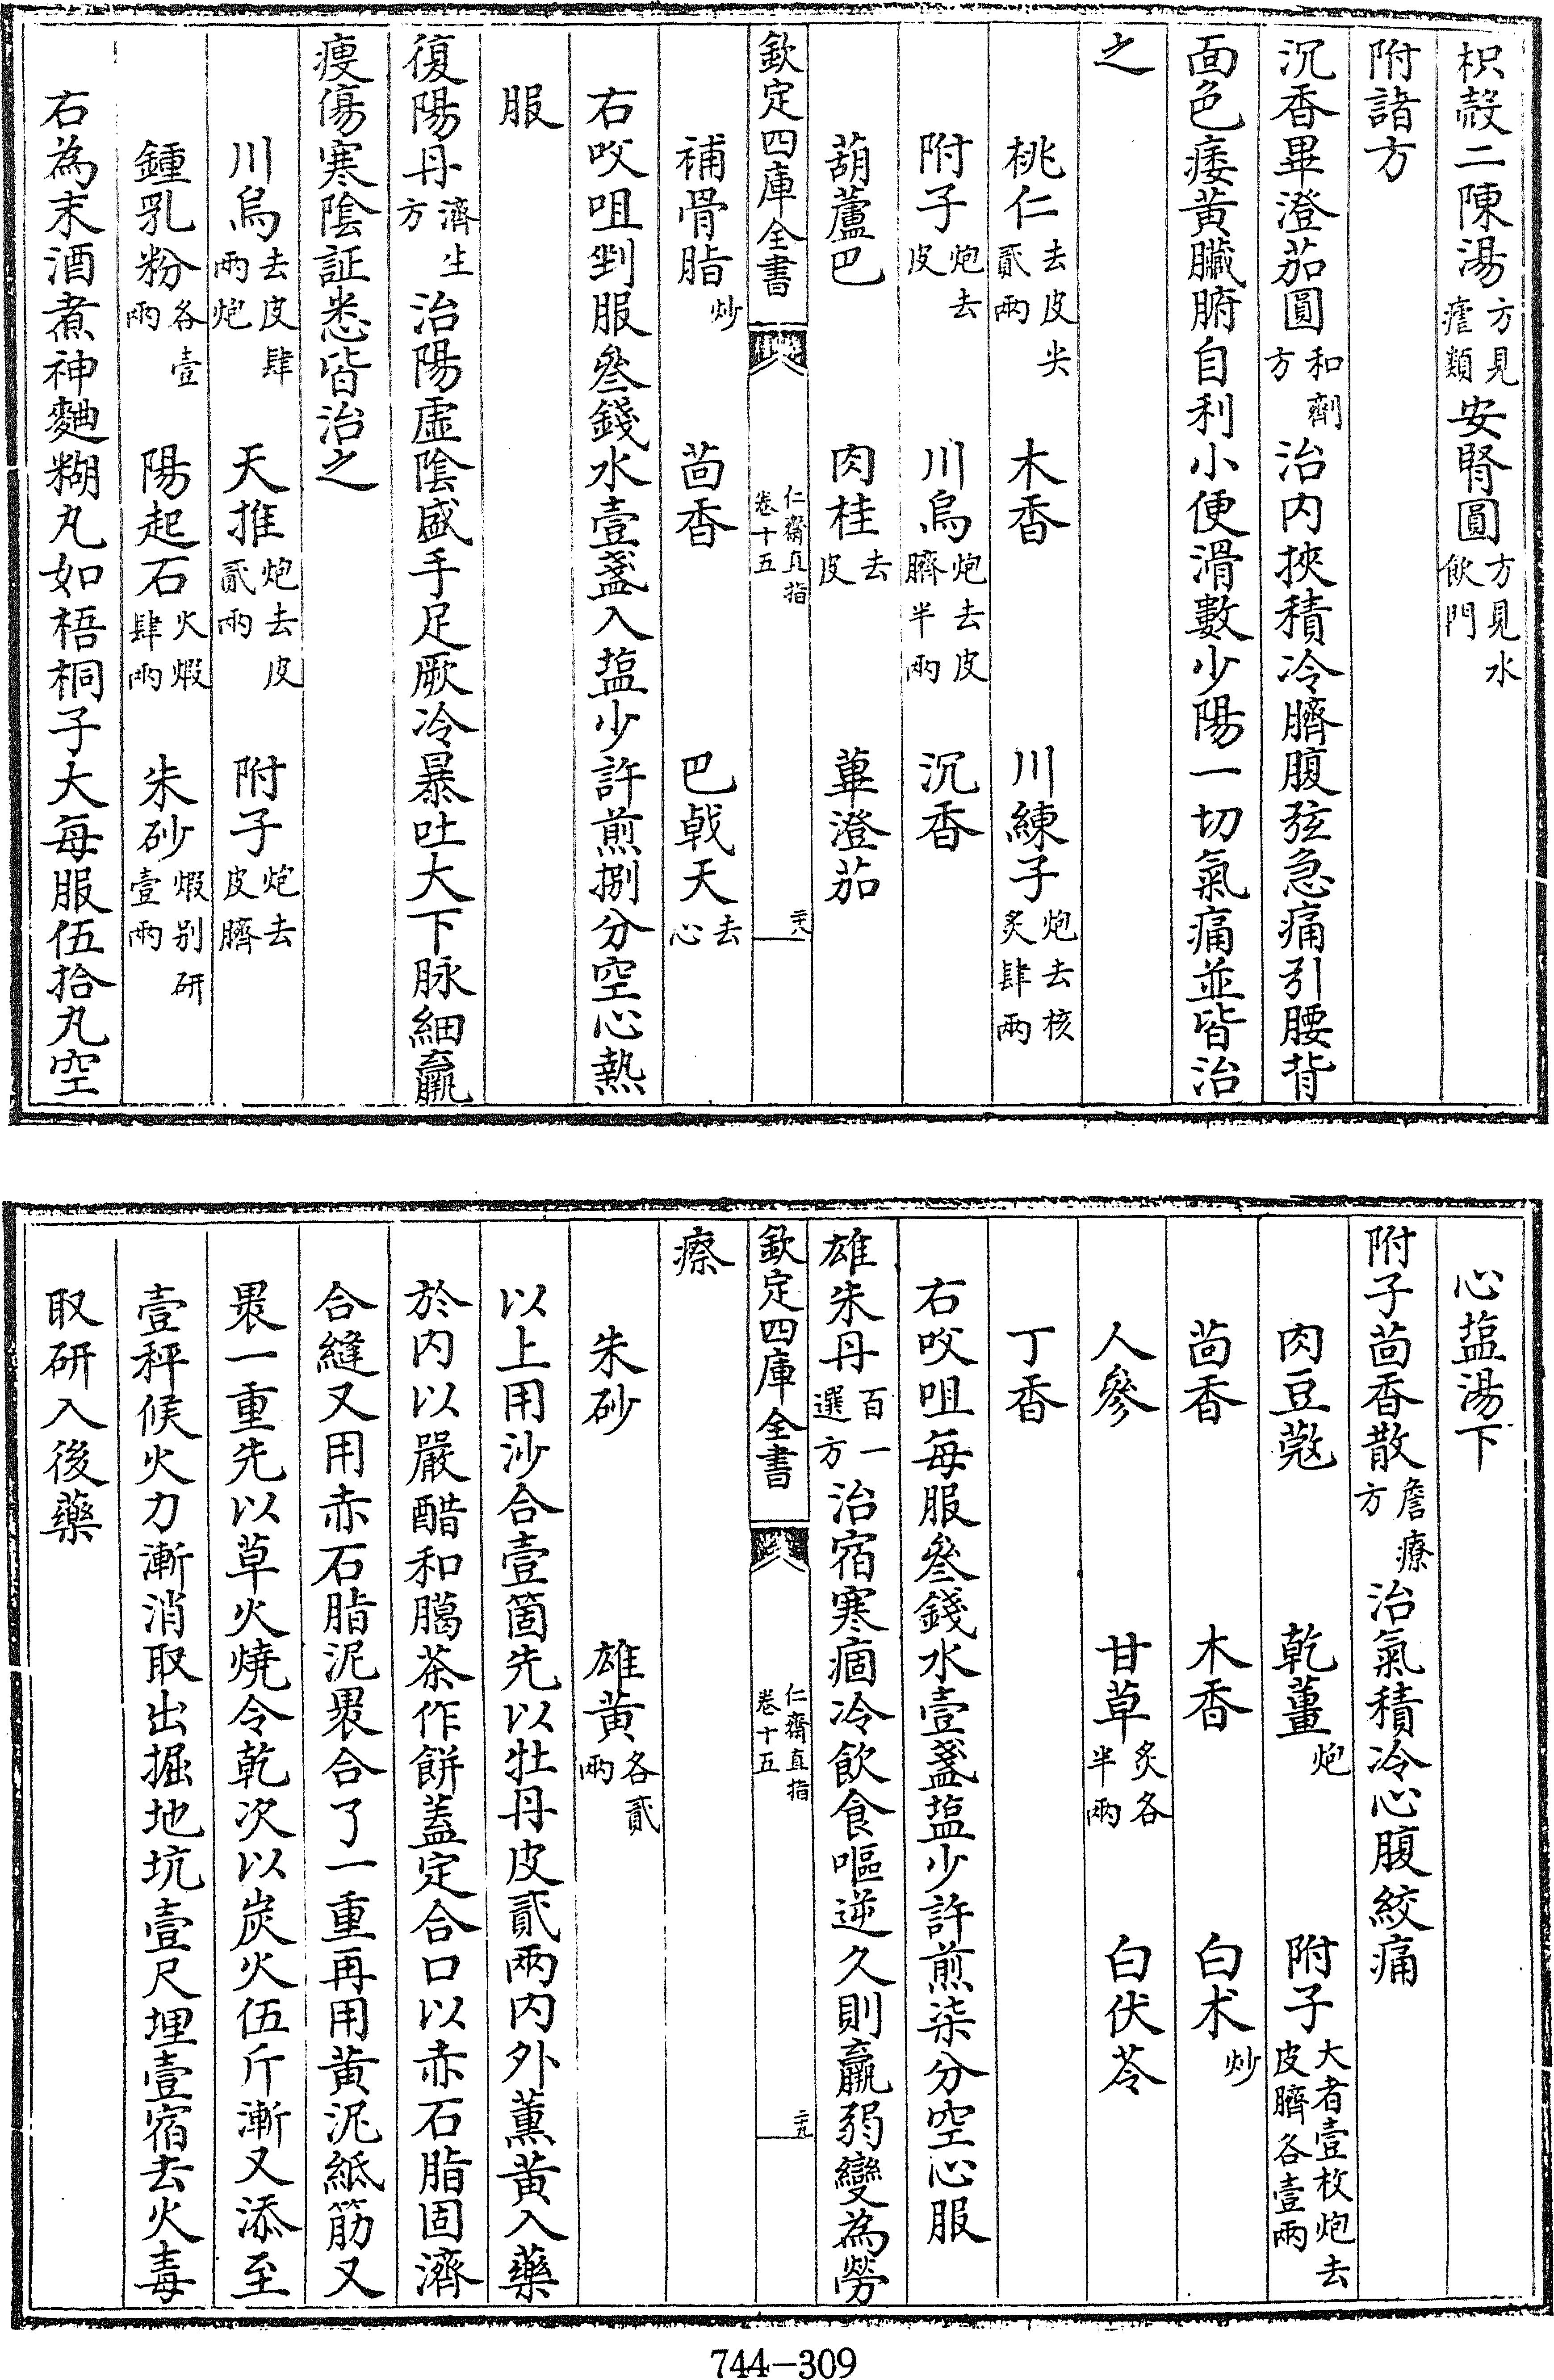 枳殻二陳湯方見瘧類安腎圓方見水飲門
附諸方
沉香蓽澄茄圓和劑方治内挾積冷臍腹弦急痛引腰背
面色痿黃臟腑自利小便滑數少陽一切氣痛並皆治
之
桃仁去皮尖貳兩　木香　川練子炮去核炙肆兩
附子炮去皮　川烏炮去皮臍半兩　沉香
葫蘆巴　肉桂去皮　蓽澄茄
欽定四庫全書　仁齋直指卷十五　二十八
補骨脂炒　茴香　巴戟天去心
右㕮咀剉服叁錢水壹盞入塩少許煎捌分空心熱
服
復陽丹濟生方治陽虛陰盛手足厥冷暴吐大下脉細羸
瘦傷寒陰証悉皆治之
川烏去皮肆兩炮　天推炮去皮貳兩　附子炮去皮臍
鍾乳粉各壹兩　陽起石火煅肆兩　朱砂煅别研壹兩
右為末酒煮神麯糊丸如梧桐子大每服伍拾丸空
心塩湯下
附子茴香散詹療方治氣積冷心腹絞痛
肉豆蔲　乾薑炮　附子大者壹枚炮去皮臍各壹兩
茴香　木香　白术炒
人參　甘草炙各半兩　白伏苓
丁香
右㕮咀每服叁錢水壹盞塩少許煎柒分空心服
雄朱丹百一選方治宿寒痼冷飲食嘔逆久則羸弱變為勞
欽定四庫全書　仁齋直指卷十五　二十九
瘵
朱砂　雄黃各貳兩
以上用沙合壹箇先以牡丹皮貳兩内外薰黃入藥
於内以嚴醋和臈茶作餅蓋定合口以赤石脂固濟
合縫又用赤石脂泥褁合了一重再用黃泥紙筋又
褁一重先以草火燒令乾次以炭火伍斤漸又添至
壹秤候火力漸消取出掘地坑壹尺埋壹宿去火毒
取研入後藥
744-309